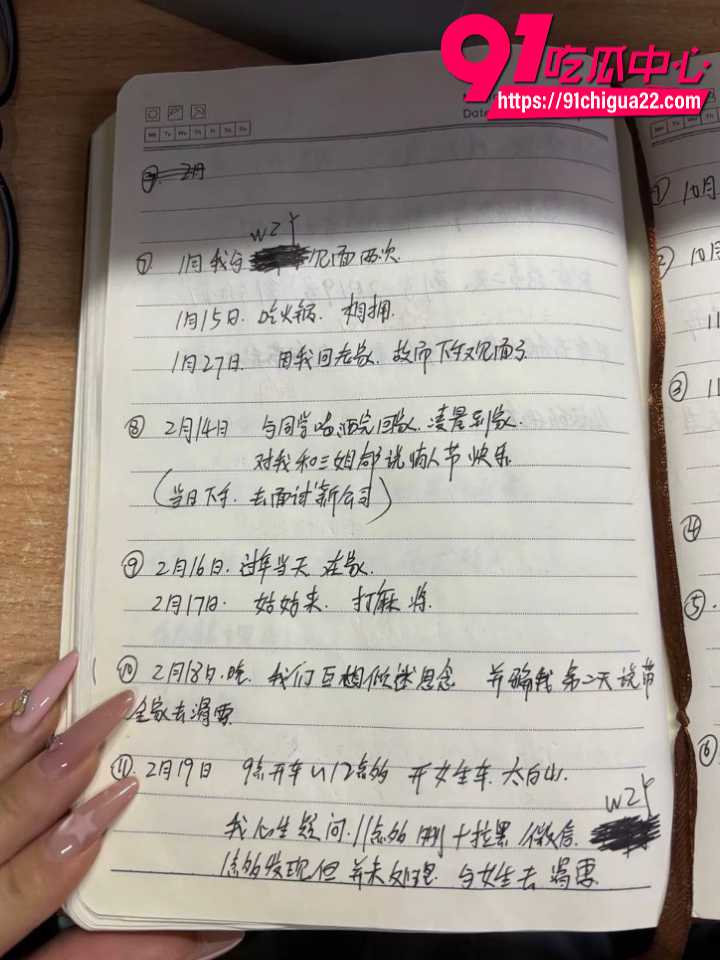 91吃瓜中心
https://91chigua22.com
Date
Mo Tu We Th Fr Sa Su
2月
wzy
⑦ 1月我与 见面两次.
1月15日. 吃火锅. 相拥.
1月27日. 因我回老家. 故而下午见面了
⑧ 2月14日 与同学喝酒完回家. 凌晨到家.
对我和三姐都说情人节快乐
(当日下午. 去面试新公司)
⑨ 2月16日. 过年当天 在家.
2月17日. 姑姑来. 打麻将.
⑩ 2月18日.晚. 我们互相倾述思念 并骗我第二天说带
全家去滑雪
⑪ 2月19日 9点开车 12点多 开女生车. 太白山.
wzy
我心生疑问. 11点多 删+拉黑 微信.
1点多发现但并未处理. 与女生去滑雪
① 10月
② 10月
③
④
⑤
⑥